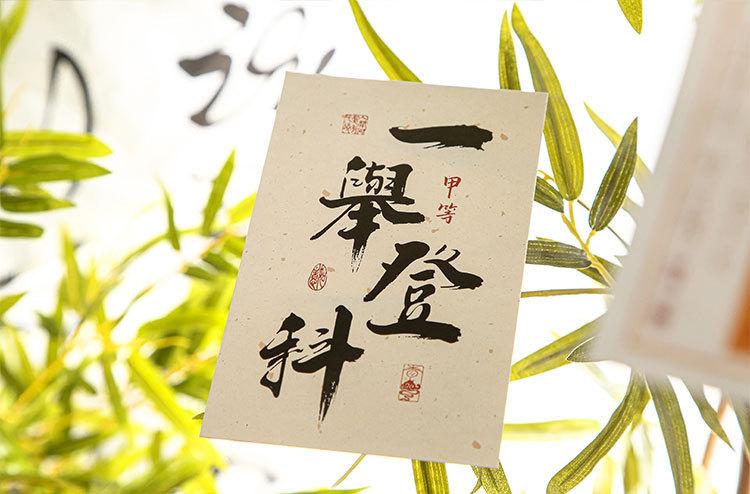 一
舉
甲等
登
科